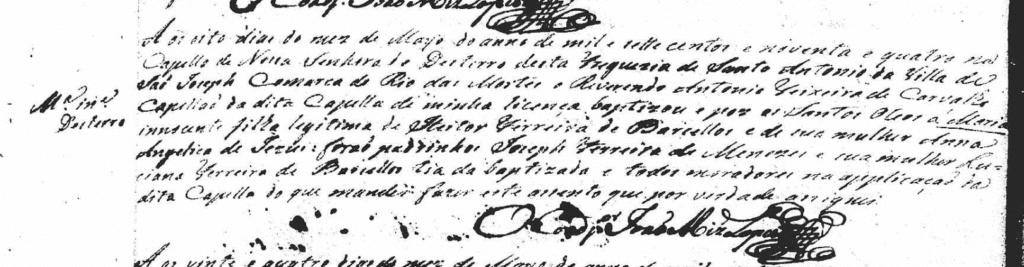 O Coadj.or João Miz Lopes
Aos oito dias do mez de Mayo do anno de mil e sette centos e noventa e quatro na
Capella de Nosa Senhora do Desterro desta Freguezia de Santo Antonio da Villa de
São Joseph Comarca do Rio das Mortes o Reverendo Antonio Teixeira de Carvalho
Capellão da dita Capella de minha licença baptizou e poz os Santos Oleos a Maria
innocente filha legitima de Heitor Ferreira de Barcellos e de sua mulher Anna
Angelica de Jezus: forão padrinhos Joseph Ferreira de Menezes e sua mulher Lu-
ciana Ferreira de Barcellos tia da baptizada e todos moradores na applicação da
dita Capella do que mandei fazer este asento que por verdade asignei
M.a in.e
Desterro
O Coadj.or João Miz Lopes
Aos vinte e quatro dias do mez de Mayo do anno de mil